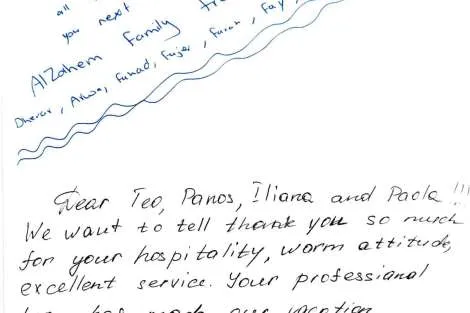 all
you next
AlZahem Family
Dherar, Arwa, Fuhad, Fajer, Farah, Fay,
Dear Teo, Panos, Iliana and Paola!!!
We want to tell thank you so much
for your hospitality, worm attitude,
excellent service. Your professional
has made our vacation